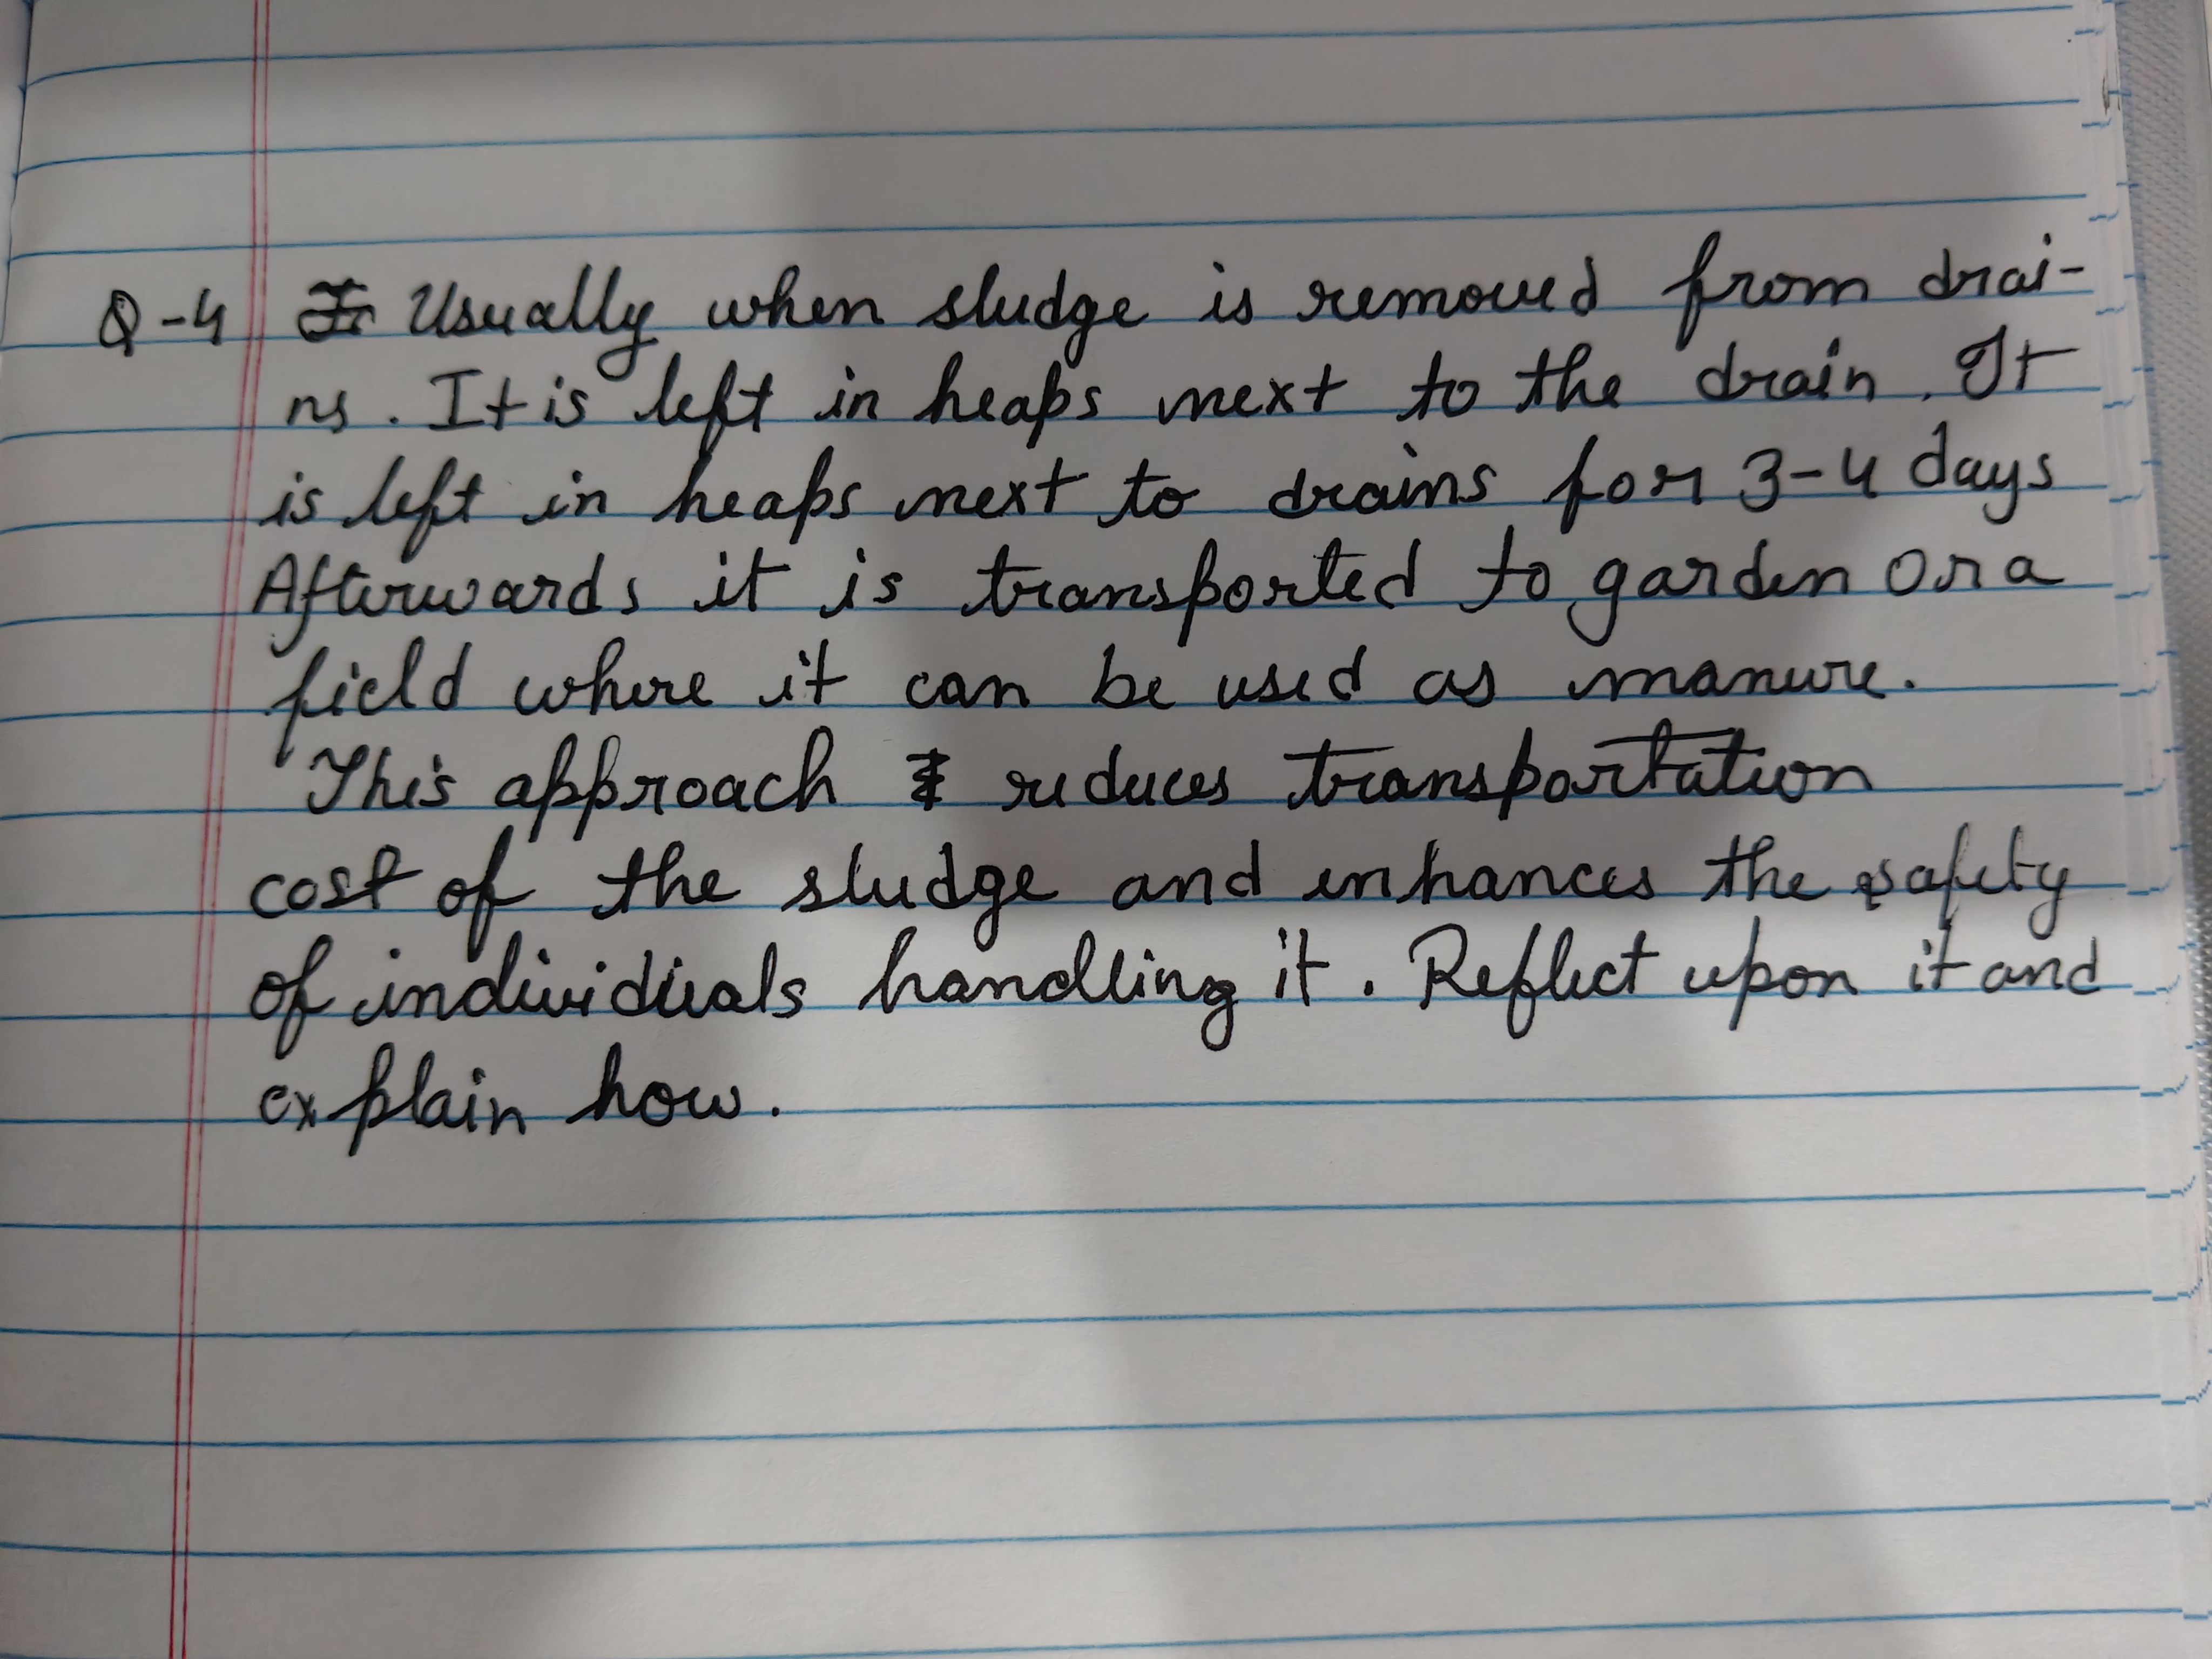 Q-4 Usually when sludge is removed from drai-
ns. It is left in heaps next to the drain. It
is left in heaps next to drains for 3-4 days
Afterwards it is transported to garden or a
field where it can be used as manure.
This approach reduces transportation
cost of the sludge and enhances the safety
of individuals handling it. Reflect upon it and
explain how.